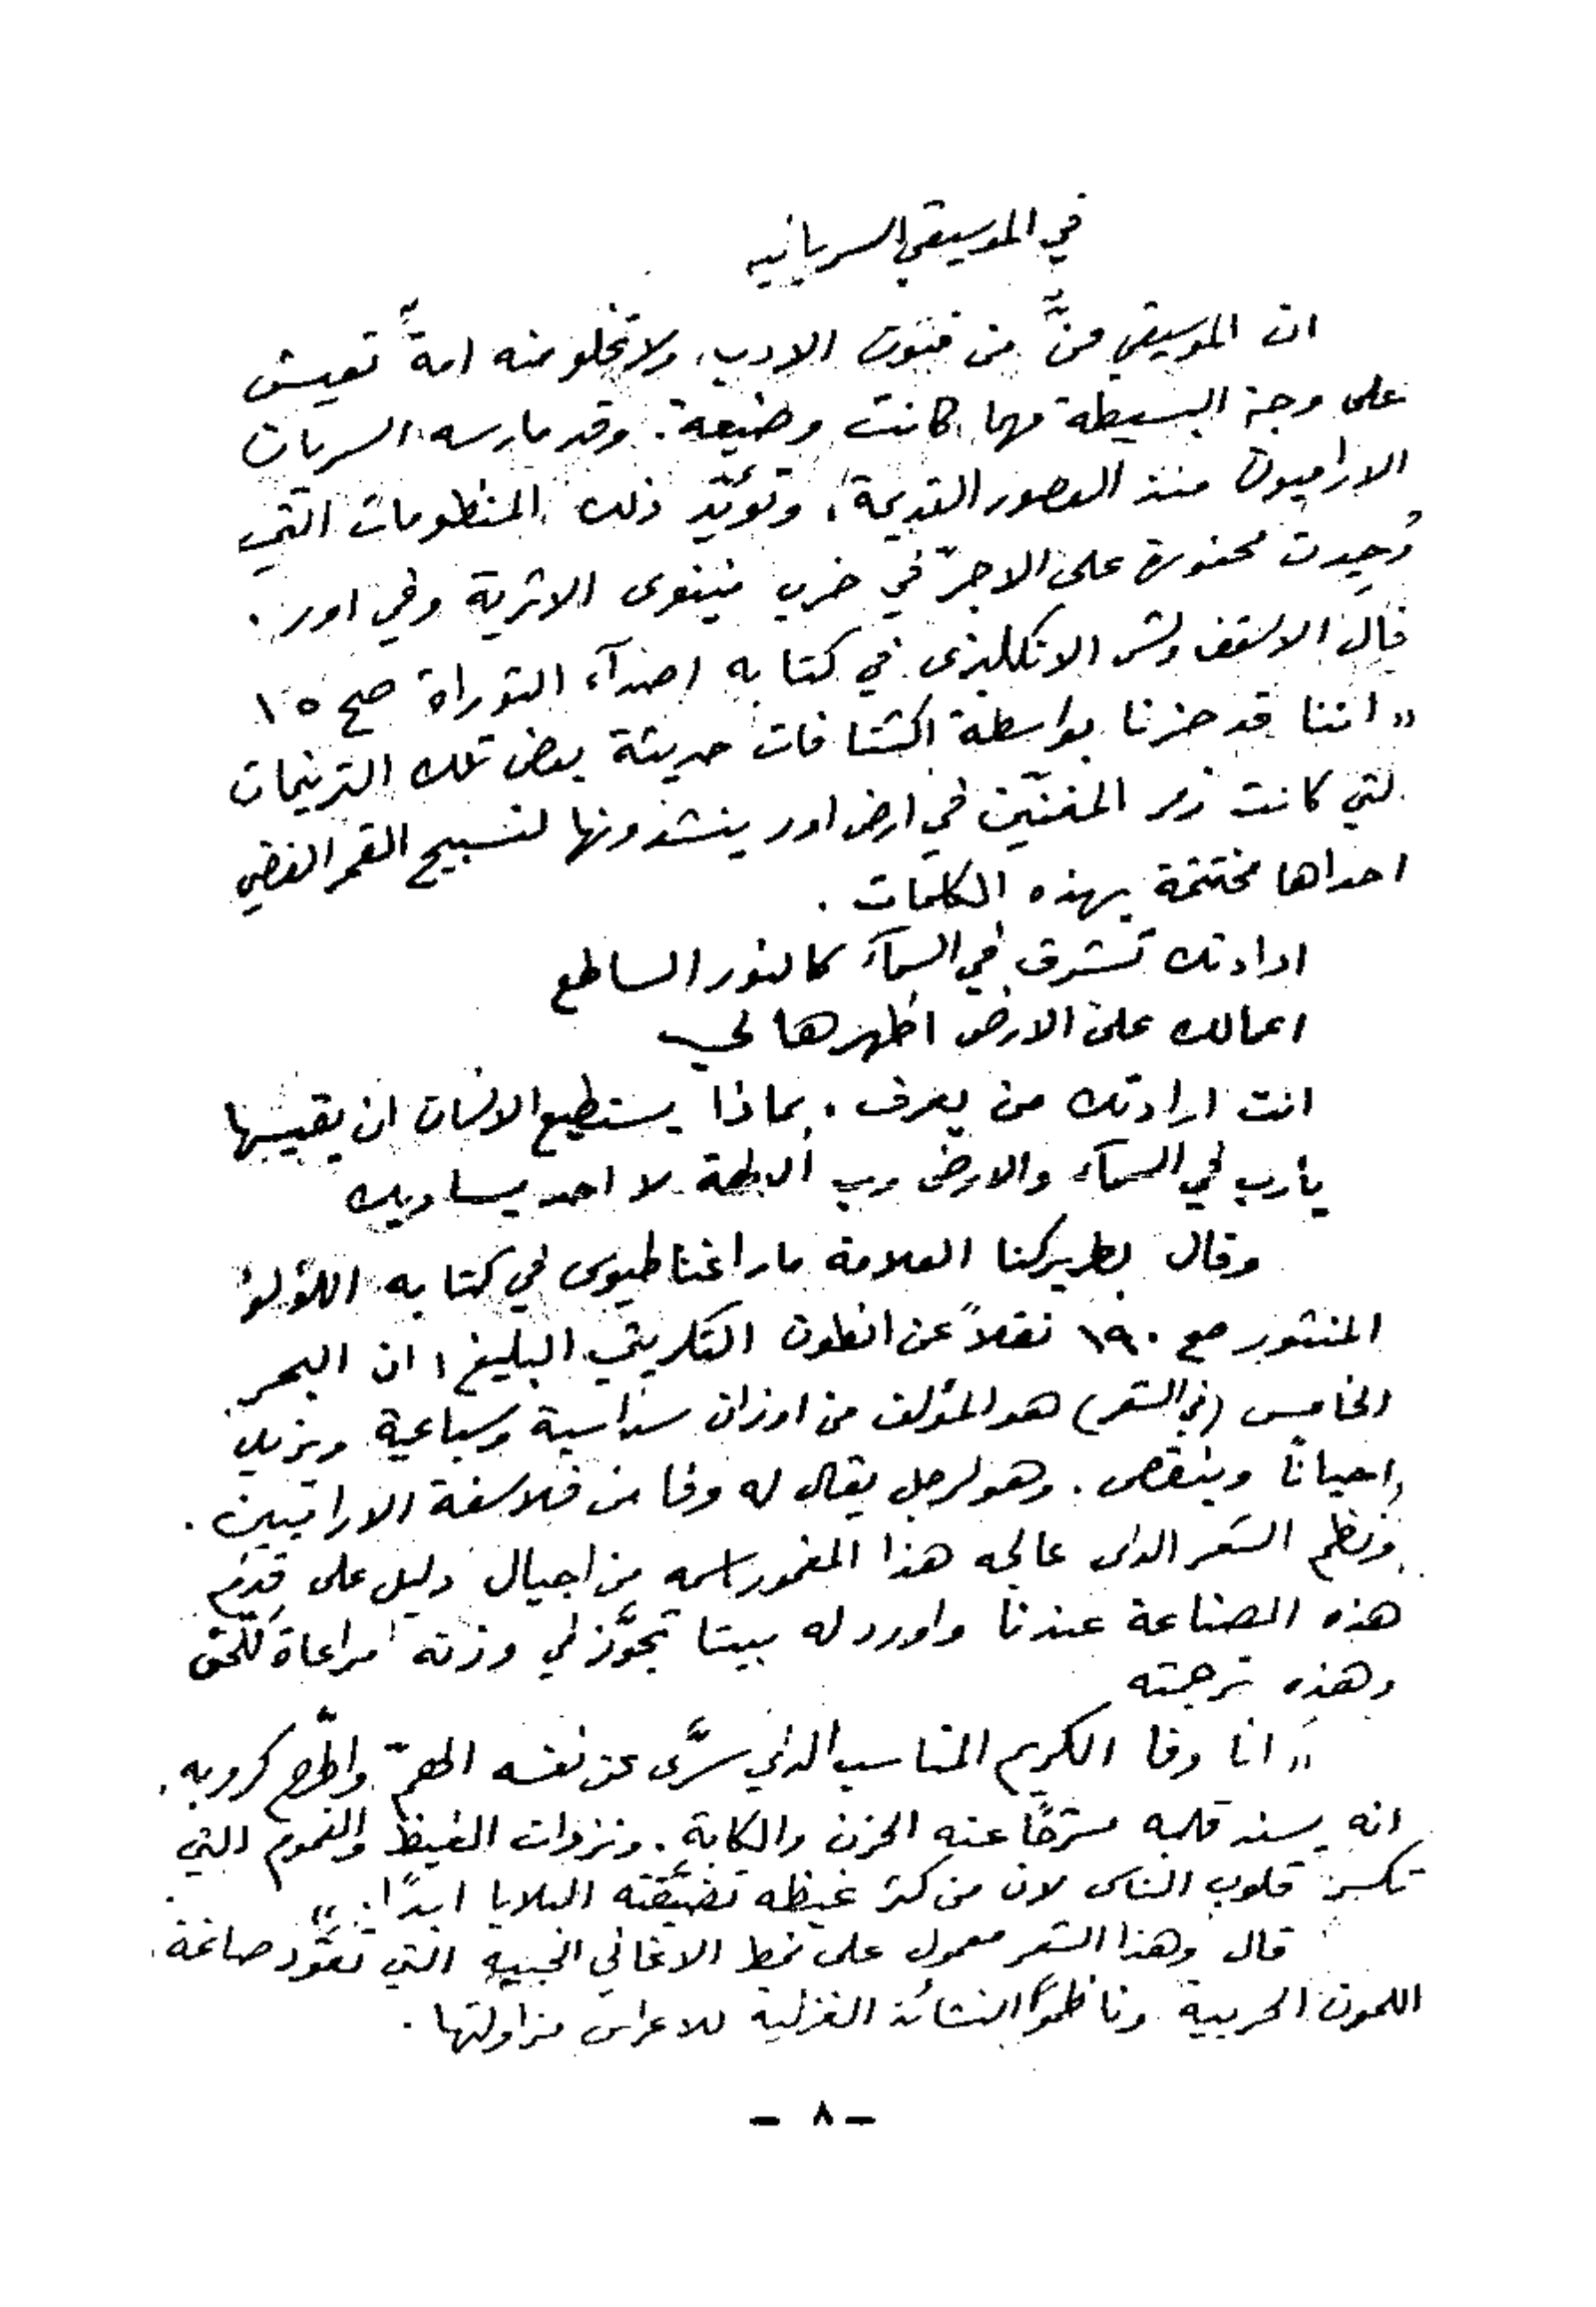 في الموسيقي السريانيه
ان الموسيقي فنٌّ من فنون الادب، ولا تخلو منه امةٌ تعيش
على وجه البسيطة مهما كانت وضيعة. وقد مارسه السريان
الاراميون منذ العصور القديمة، وتؤيّد ذلك المنظومات التي
وُجدت محفورة على الاجرّ في خرب نينوى الاثرية وفي اور.
قال الاسقف ولش الانكليزى في كتابه اصدآء التوراة صح ١٥
" اننا قد حزنا بواسطة اكتشافات حديثة بعض تلك الترنيمات
لتي كانت زمر المغنّين في ارض اور ينشدونها لتسبيح القمر الفضي
احداها مختتمة بهذه الكلمات .
ارادتك تشرق في السمآء كالنور الساطع
اعمالك على الارض اظهرها لي
انت ارادتك من يعرف . بماذا يستطيع الانسان ان يقيسها
يارب في السمآء والارض رب لا احد يساويك
وقال بطريركنا العلامة مار اغناطيوس في كتابه اللؤلؤ
المنثور صح ١٩٠ نقلاً عن انطون التكريتي البليغ، ان البحر
الخامس (في الشعر) هو المؤلف من اوزان سداسية وسباعية ويزيد
احيانًا وينقص. وهو لرجل يقال له وفا من فلاسفة الاراميين.
ونظم الشعر الذى عالجه هذا المغمور اسمه من اجيال دليل على قِدَم
هذه الصناعة عندنا واورد له بيتا تجوّز لي وزنه مراعاة للحق
وهذه ترجمته
" انا وفا الكريم المناسب الذي سرَّى عن نفسه الهمّ واطّرح كروبه.
انه يسند قلبه مسرّحًا عنه الحزن والكابة. ونزوات الغيظ والغموم التي
تكسر قلوب الناس لان من كثر غيظه تضيّقته البلايا ابدًا. "
قال وهذا الشعر معمول على نمط الاغاني التي تعوّد صاغة
اللحون الحربية وناظموا النشائد الغزلية للاعراس مزاولتها .
– ٨ –